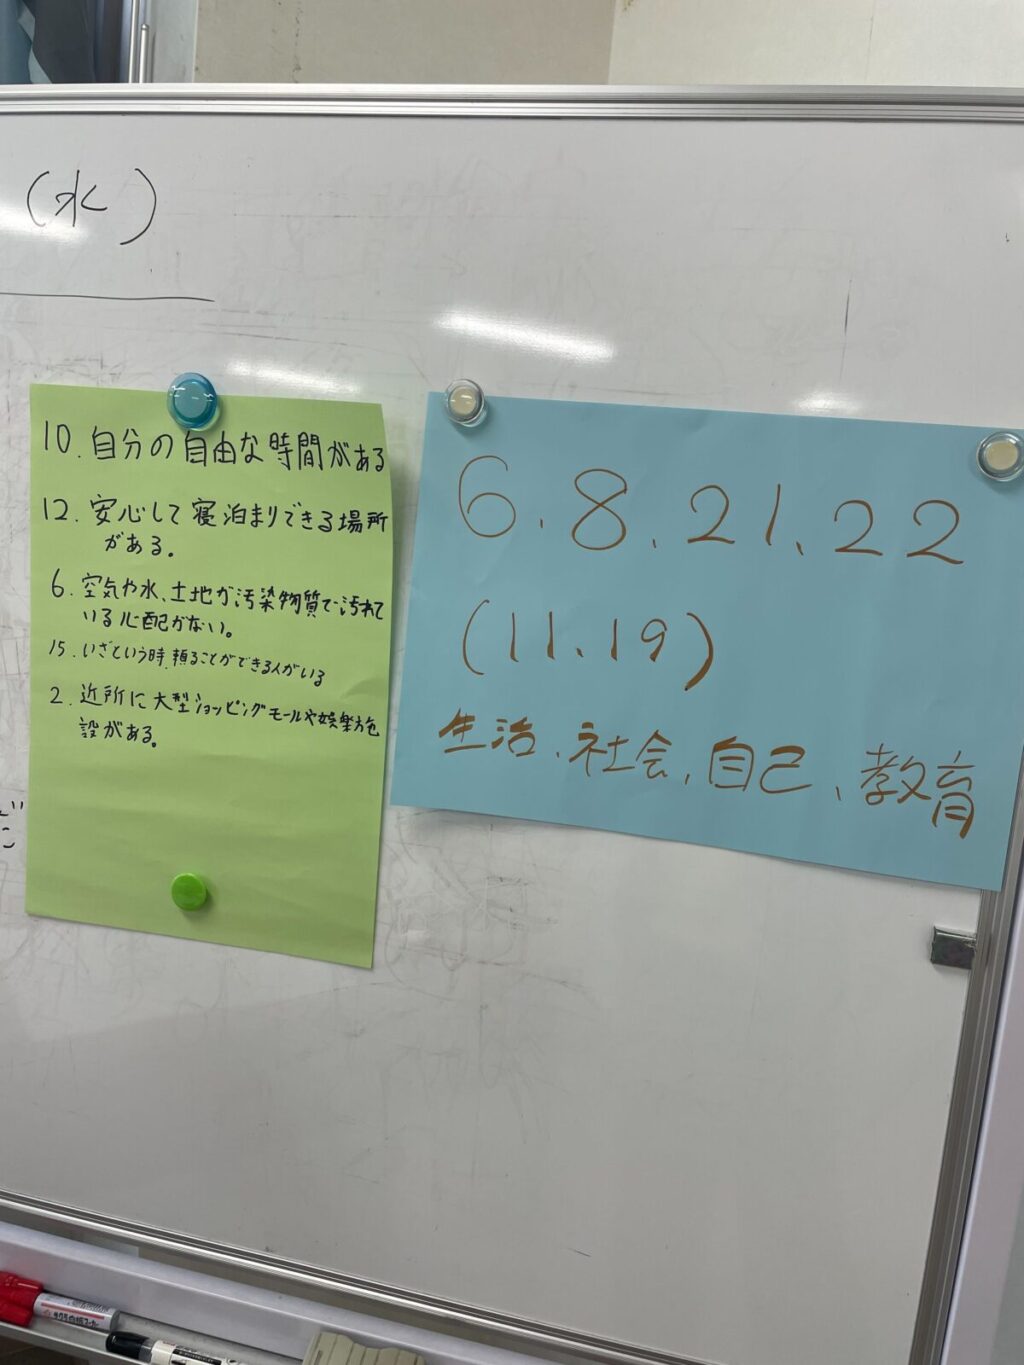 (水)
10. 自分の自由な時間がある
12. 安心して寝泊まりできる場所
がある。
6. 空気や水、土地が汚染物質で汚れて
いる心配がない。
15. いざという時、頼ることができる人がいる
2. 近所に大型ショッピングモールや娯楽施
設がある。
6、8、21、22
(11、19)
生活、社会、自己、教育